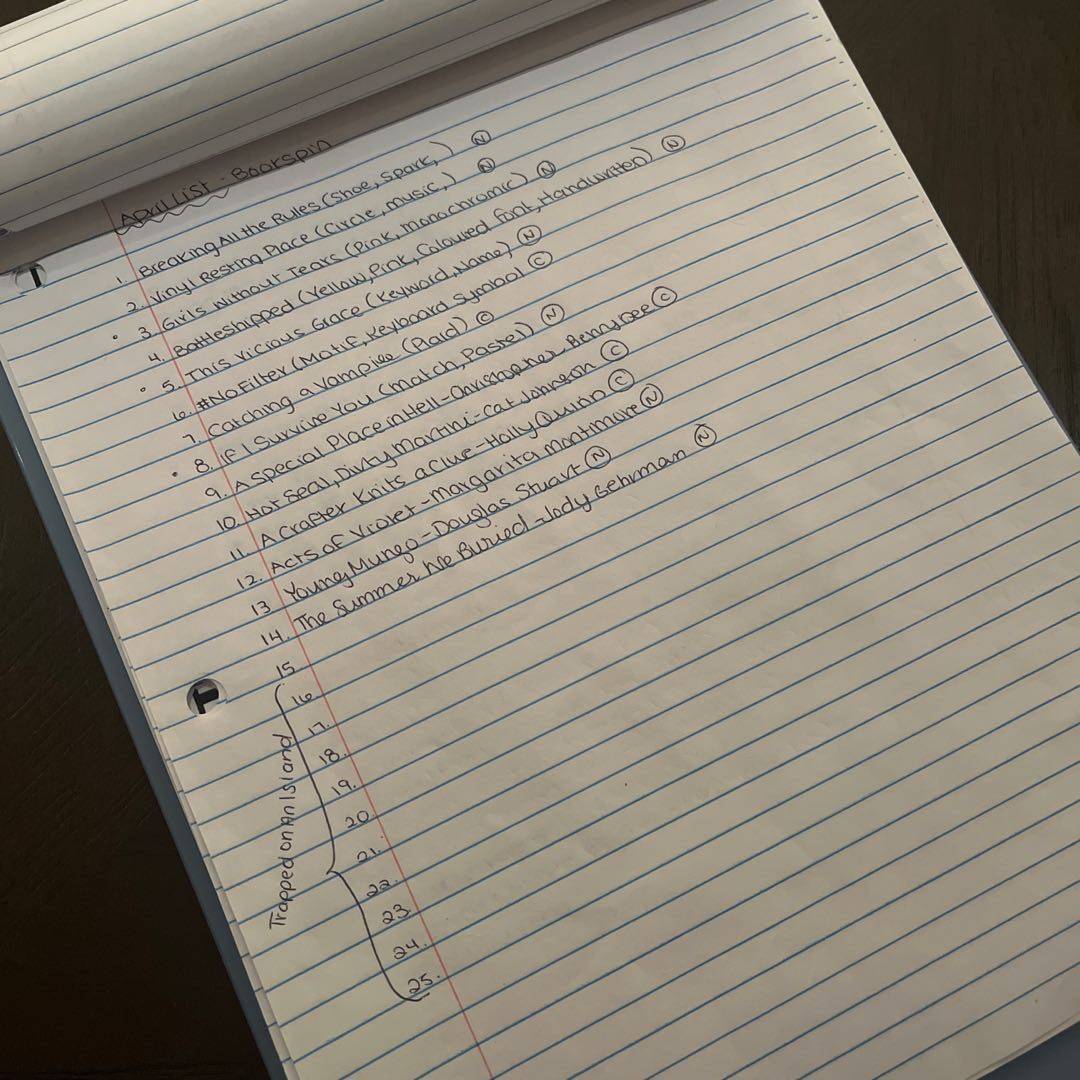 April List - Bookspin
1. Breaking All the Rules (Shoe, Spark,) N
2. Vinyl Resting Place (Circle, music,) N
3. Girls Without Tears (Pink, monochromic) N
4. Battleshipped (Yellow, Pink, Coloured font, Handwritten) N
5. This Vicious Grace (Keyword, Name) N
6. #NoFilter (Motif, Keyboard Symbol C
7. Catching a Vampire (Plaid) C
8. If I Survive You (match, Pastel) N
9. A Special Place in Hell - Christopher Bennydee C
10. Hot Seal, Dirty Martini - Cat Johnson C
11. A Crafter Knits a Clue - Holly Quinn C
12. Acts of Violet - Margarita Montimore N
13 Young Mungo - Douglas Stuart N
14. The Summer We Buried - Jody Gehrman N
15
16
17.
18.
19.
20
21.
22.
23
24.
25.
Trapped on An Island